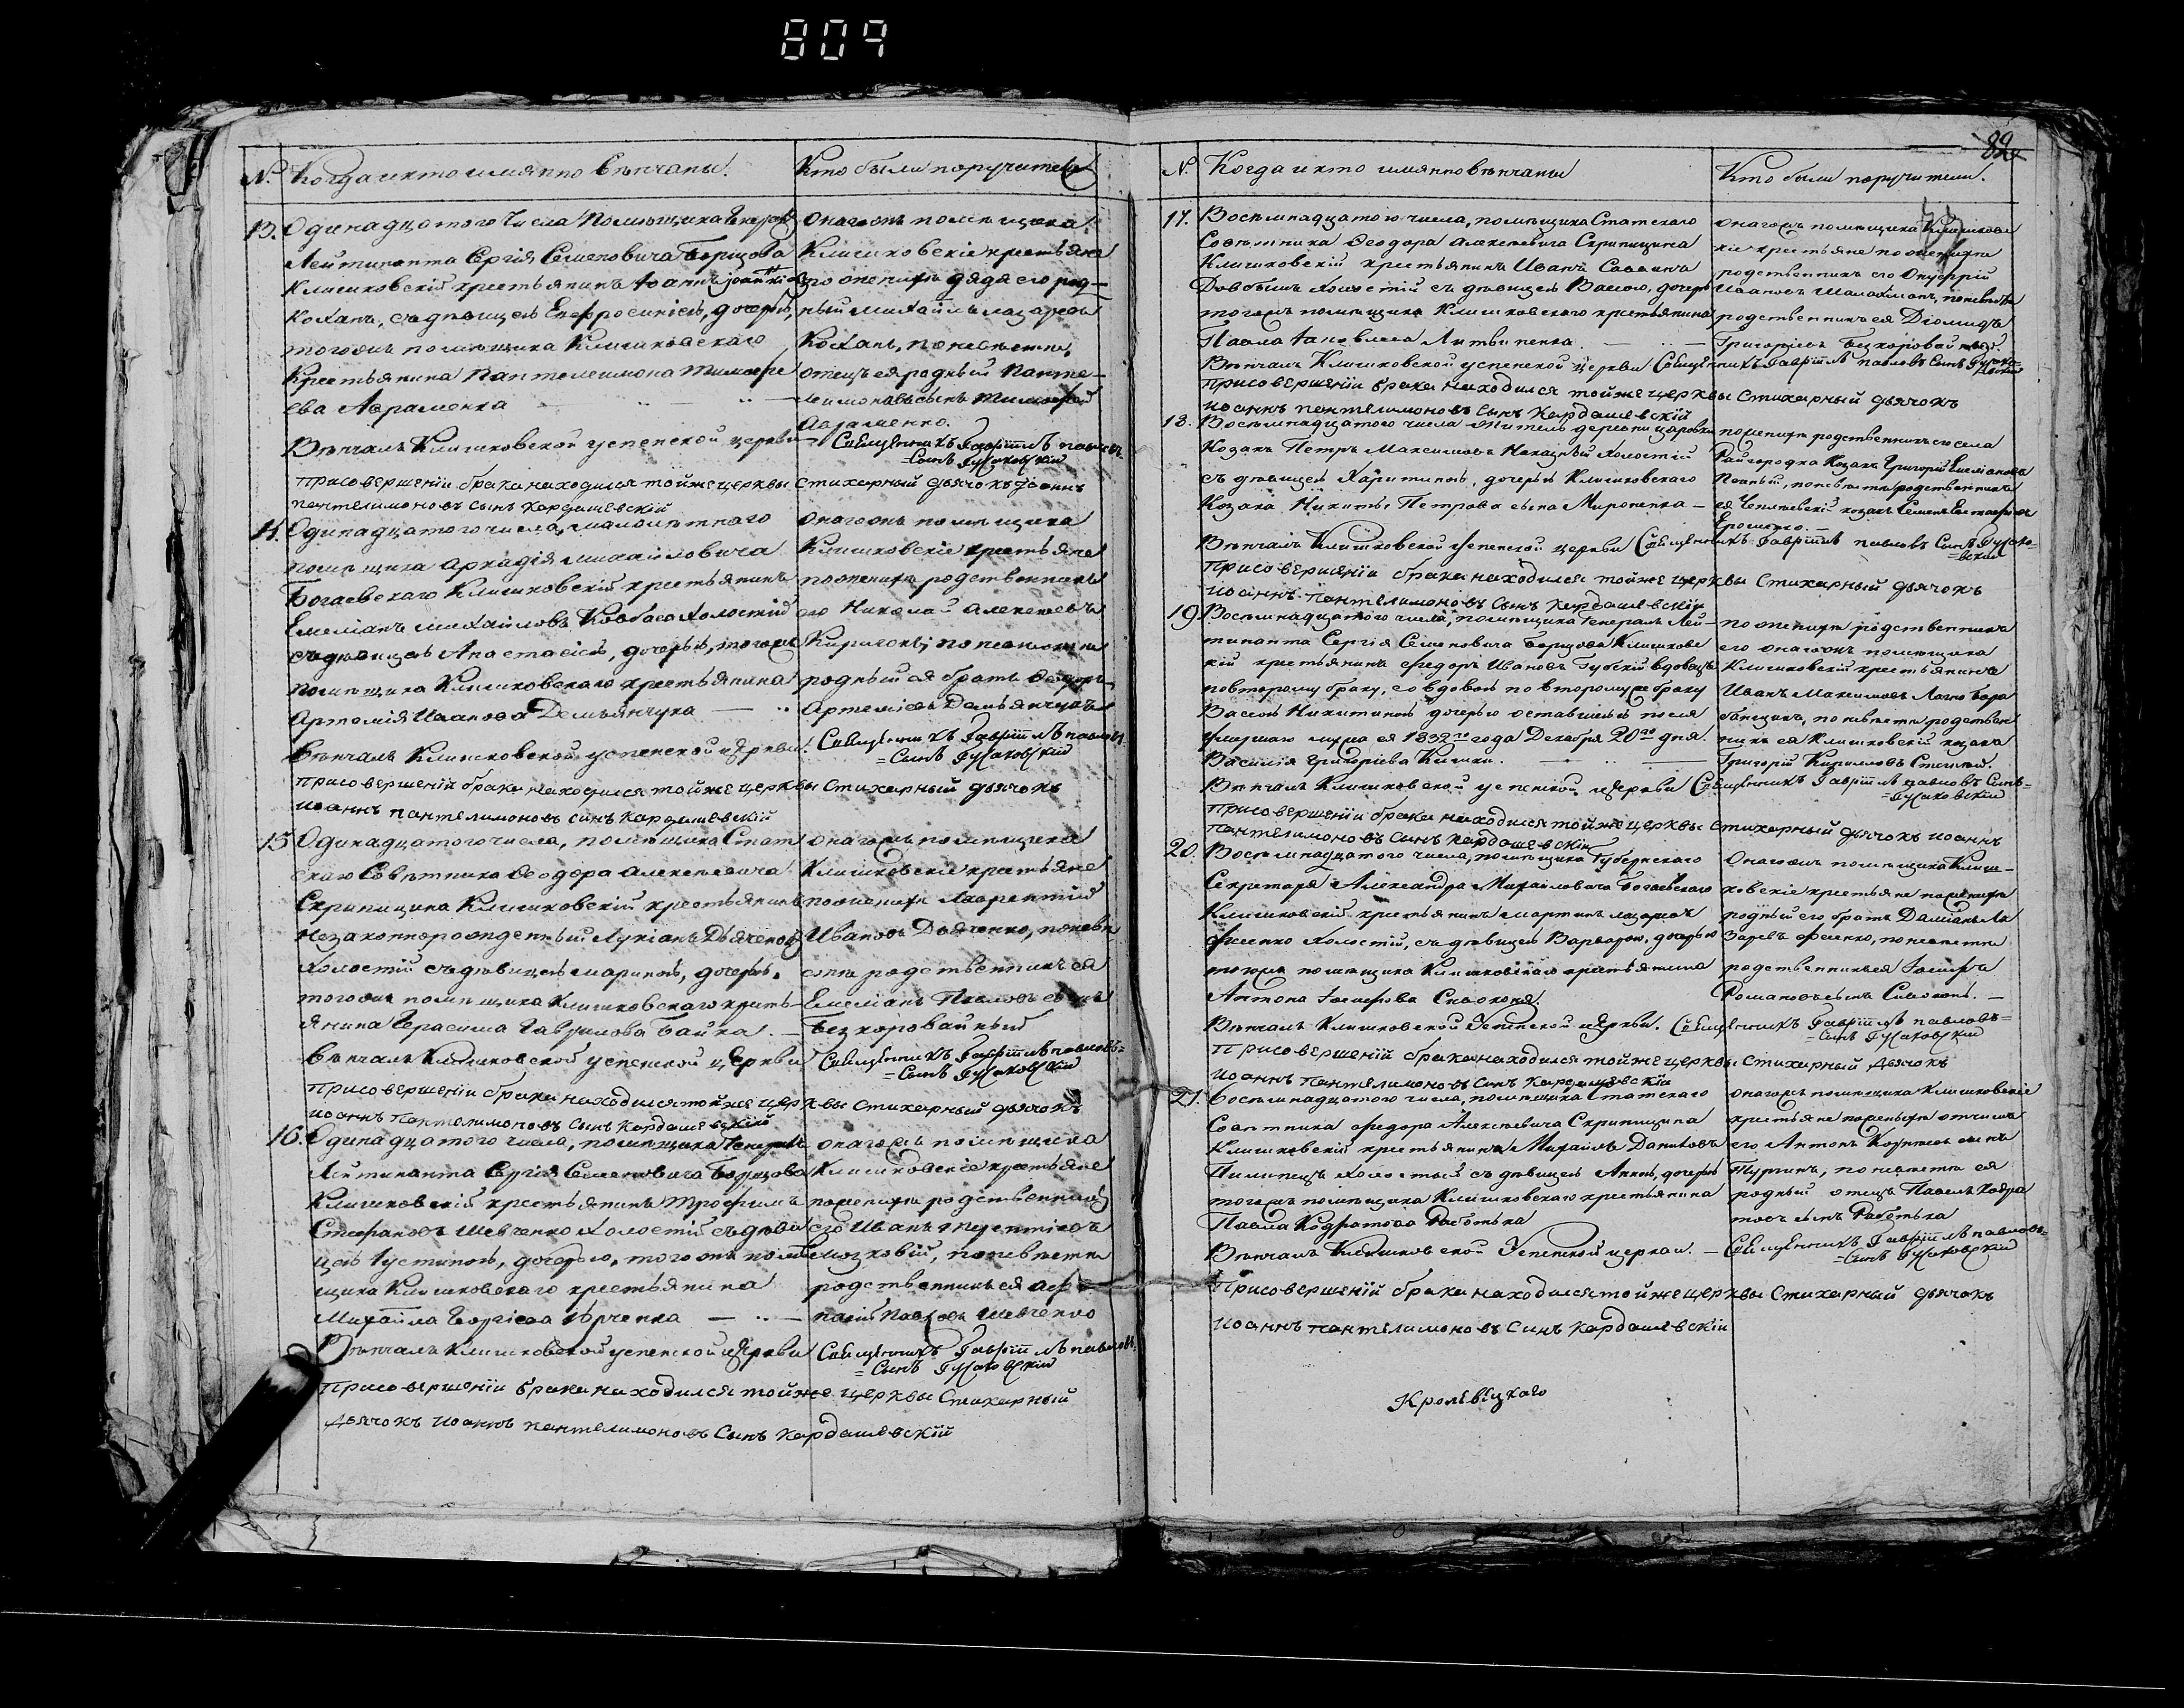 809
82
№. Когда и кто имянно вѣнчаны.
Кто были поручители
13. Одинадцатого Числа Помѣщика Генералъ
Лейтинанта Сергія Семеновича Борщова
Клишковскій крестьянинъ Іоаннъ
Коханъ, съ дѣвицею Евфросиніею, дочерью,
тогожъ помѣщика Клишковскаго
Крестьянина Пантелеимона Тимофе
ева Авраменка
Онагожъ помѣщика
Клишковскіе крестьяне
по женихѣ дядя его род-
ный Михаилъ Лазаревъ
Коханъ, по невѣстѣ,
отецъ ея родный Панте-
лимонъ сынъ Тимофей
Авраменко.
Вѣнчалъ Клишковской успенской церкви
Священникъ Гавріилъ павловъ
=Сынъ Гусаковскій
При совершеніи брака находился тойже церквы стихарный дьячокъ Іоаннъ
пантелимоновъ сынъ Кардашевскій
14. Одинадцатого числа, малолѣтнаго
помѣщика Аркадія Михайловича
Богаевскаго Клишковскій крестьянинъ
Емеліанъ Михаиловъ Ковбаса холостій
съ дѣвицею Анастасіею, дочерью, тогожъ
помѣщика Клишковскаго крестьянина
Артемія Иванова Демьянчука
Онагожъ помѣщика
Клишковскіе крестьяне
по женихѣ родственникъ
его Николай Алексѣевъ
по невѣстѣ
родный ея братъ Федоръ
Артеміевъ Демьянчукъ
Вѣнчалъ Клишковской успенской церкви.
Священникъ Гавріилъ павловъ
=Сынъ Гусаковскій
При совершеніи брака находился тойже церквы Стихарный дьячокъ
Иоаннъ пантелимоновъ синъ Кардашевскій
15. Одинадцатого числа, помѣщика Стат
скаго Совѣтника Феодора Алексѣевича
Скрипицина Клишковскій крестьянинъ
незаконнорожденный Лукіанъ Дьяченко
Холостій съ дѣвицею Мариною, дочерью,
тогожъ помѣщика Клишковскаго кресть-
янина Герасима Гаврилова Байка.
онагожъ помѣщика
Клишковскіе крестьяне
по женихѣ Лаврентій
Ивановъ Дьяченко, по невѣ
стѣ родственникъ ея
Емеліанъ Павловъ сынъ
Безкоровайный
Вѣнчалъ Клишковской успенской церкви
Священникъ Гавріилъ павловъ=
=Сынъ Гусаковскій
При совершеніи брака находился тойже церквы стихарный дьячокъ
Иоаннъ пантелимоновъ синъ Кардашевскій
16. Одинадцатого числа, помѣщика Генералъ
Лейтинанта Сергія Семеновича Борщова
Клишковскій крестьянинъ Трофимъ
Стефановъ Шевченко Холостій съ дѣви
цею Іустиною, дочерью, тогожъ помѣ
щика Клишковскаго крестьянина
Михаила Георгіева Юрченка
онагожъ помѣщика
Клишковскіе крестьяне
по женихѣ родственникъ
его Иванъ
по невѣстѣ
родственникъ ея
Павловъ Шевченко
Вѣнчалъ Клишковской успенской церкви
Священникъ Гавріилъ павловъ.
=Сынъ Гусаковскій
При совершеніи брака находился тойже церквы Стихарный
Дьячокъ Иоаннъ пантелимоновъ Сынъ Кардашевскій
№. Когда и кто имянно вѣнчаны
Кто были поручители.
17. Восѣмнадцатого числа, помѣщика Статскаго
Совѣтника Феодора Алексѣевича Скрипицина
Клишковскій крестьянинъ Иванъ Саввинъ
Довбышъ холостій съ дѣвицею Васою, дочерью
тогожъ помѣщика Клишковского крестьянина
Павла Іаковлева Литвиненка.
онагожъ помѣщика Клишковс
кіе крестьяне по женихѣ
родственникъ его Онуфрій
Ивановъ по невѣстѣ
родственникъ ея Діомидъ
Григоріевъ Безкоровайный.
Вѣнчалъ Клишковской успенской церкви Священникъ Гавріилъ павловъ Сынъ Гусако-
вскій
При совершеніи брака находился тойже церквы стихарный дьячокъ
Иоаннъ пантелимоновъ сынъ Кардашевскій
18. Восѣмнадцатого числа житель деревни Царовки
Козакъ Петръ Максимовъ Наказный холостій
съ дѣвицею Харитиною, дочерью Клишковскаго
Козака Никиты Петрова сына Мироненка
по женихѣ родственникъ его села
Райгородка Козакъ Григорій Емеліановъ
по невѣстѣ родственникъ
ея козакъ Семенъ
Ерошенко.
Вѣнчалъ Клишковской Успенской церкви Священникъ Гавріилъ павловъ Сынъ Гусако-
=вскій
При совершеніи брака находился тойже церквы Стихарный дьячокъ
Иоаннъ пантелимоновъ сынъ Кардашевскій
19. Восѣмнадцатого числа, помѣщика Генералъ Лей-
тинанта Сергія Семеновича Борщова Клишковс
кій крестьянинъ Федоръ Ивановъ Губскій вдовецъ
по второму браку, со вдовою по второму же браку
Васою Никитиною дочерью оставшеюся послѣ
умершаго мужа ея 1832го года Декабря 20го дня.
Василія Григоріева Кишки.
по женихѣ родственникъ
его онагожъ помѣщика
Клишковскій крестьянинъ
Иванъ Максимовъ
по невѣстѣ родствен
никъ ея Клишковскій козакъ
Григорій Кириловъ
Вѣнчалъ Клишковской успенской церкви Священникъ Гавріилъ павловъ Сынъ=
=Гусаковскій
При совершеніи брака находился тойже церквы стихарный дьячокъ иоаннъ
пантелимоновъ синъ Кардашевскій
20. Восѣмнадцатого числа, помѣщика Губернскаго
Секретаря Александра Михайловича Богаевскаго
Клишковскій крестьянинъ Мартинъ Лазаревъ
Фесенко Холостій, съ дѣвицею Варварою, дочерью
тогожъ помѣщика Клишковскаго крестьянина
Антона Іосифова Сквокня.
Онагожъ помѣщика Клиш-
ковскіе крестьяне по женихѣ
родный его братъ Даміанъ Ла
заревъ Фесенко, по невѣстѣ
родственникъ ея Іосифъ
Романовъ сынъ
Вѣнчалъ Клишковской Успенской церкви. Священникъ Гавріилъ павловъ=
=Сынъ Гусаковскій
При совершеній брака находился тойже церквы стихарный Дьячокъ
Иоаннъ пантелимоновъ синъ Кардашевскій
21. Восѣмнадцатого числа, помѣщика Статскаго
Совѣтника Федора Алексѣевича Скрипицина
Клишковскій крестьянинъ Михаилъ Даниловъ
Пилипецъ холостый съ дѣвицею Анною, дочерью
тогожъ помѣщика Клишковскаго крестьянина
Павла Кодратова Работька
онагожъ помѣщика Клишковскіе
крестьяне по женихѣ отчимъ
его Антонъ сынъ
Туринъ, по невѣстѣ ея
родный отецъ Павелъ Кодра
товъ сынъ Работька
Вѣнчалъ Клишковской Успенской церкви. — Священникъ Гавріилъ павловъ=
=Сынъ Гусаковскій
При совершеній брака находился тойже церквы Стихарный дьячокъ
Иоаннъ пантелимоновъ синъ Кардашевскій
Кролевецкаго